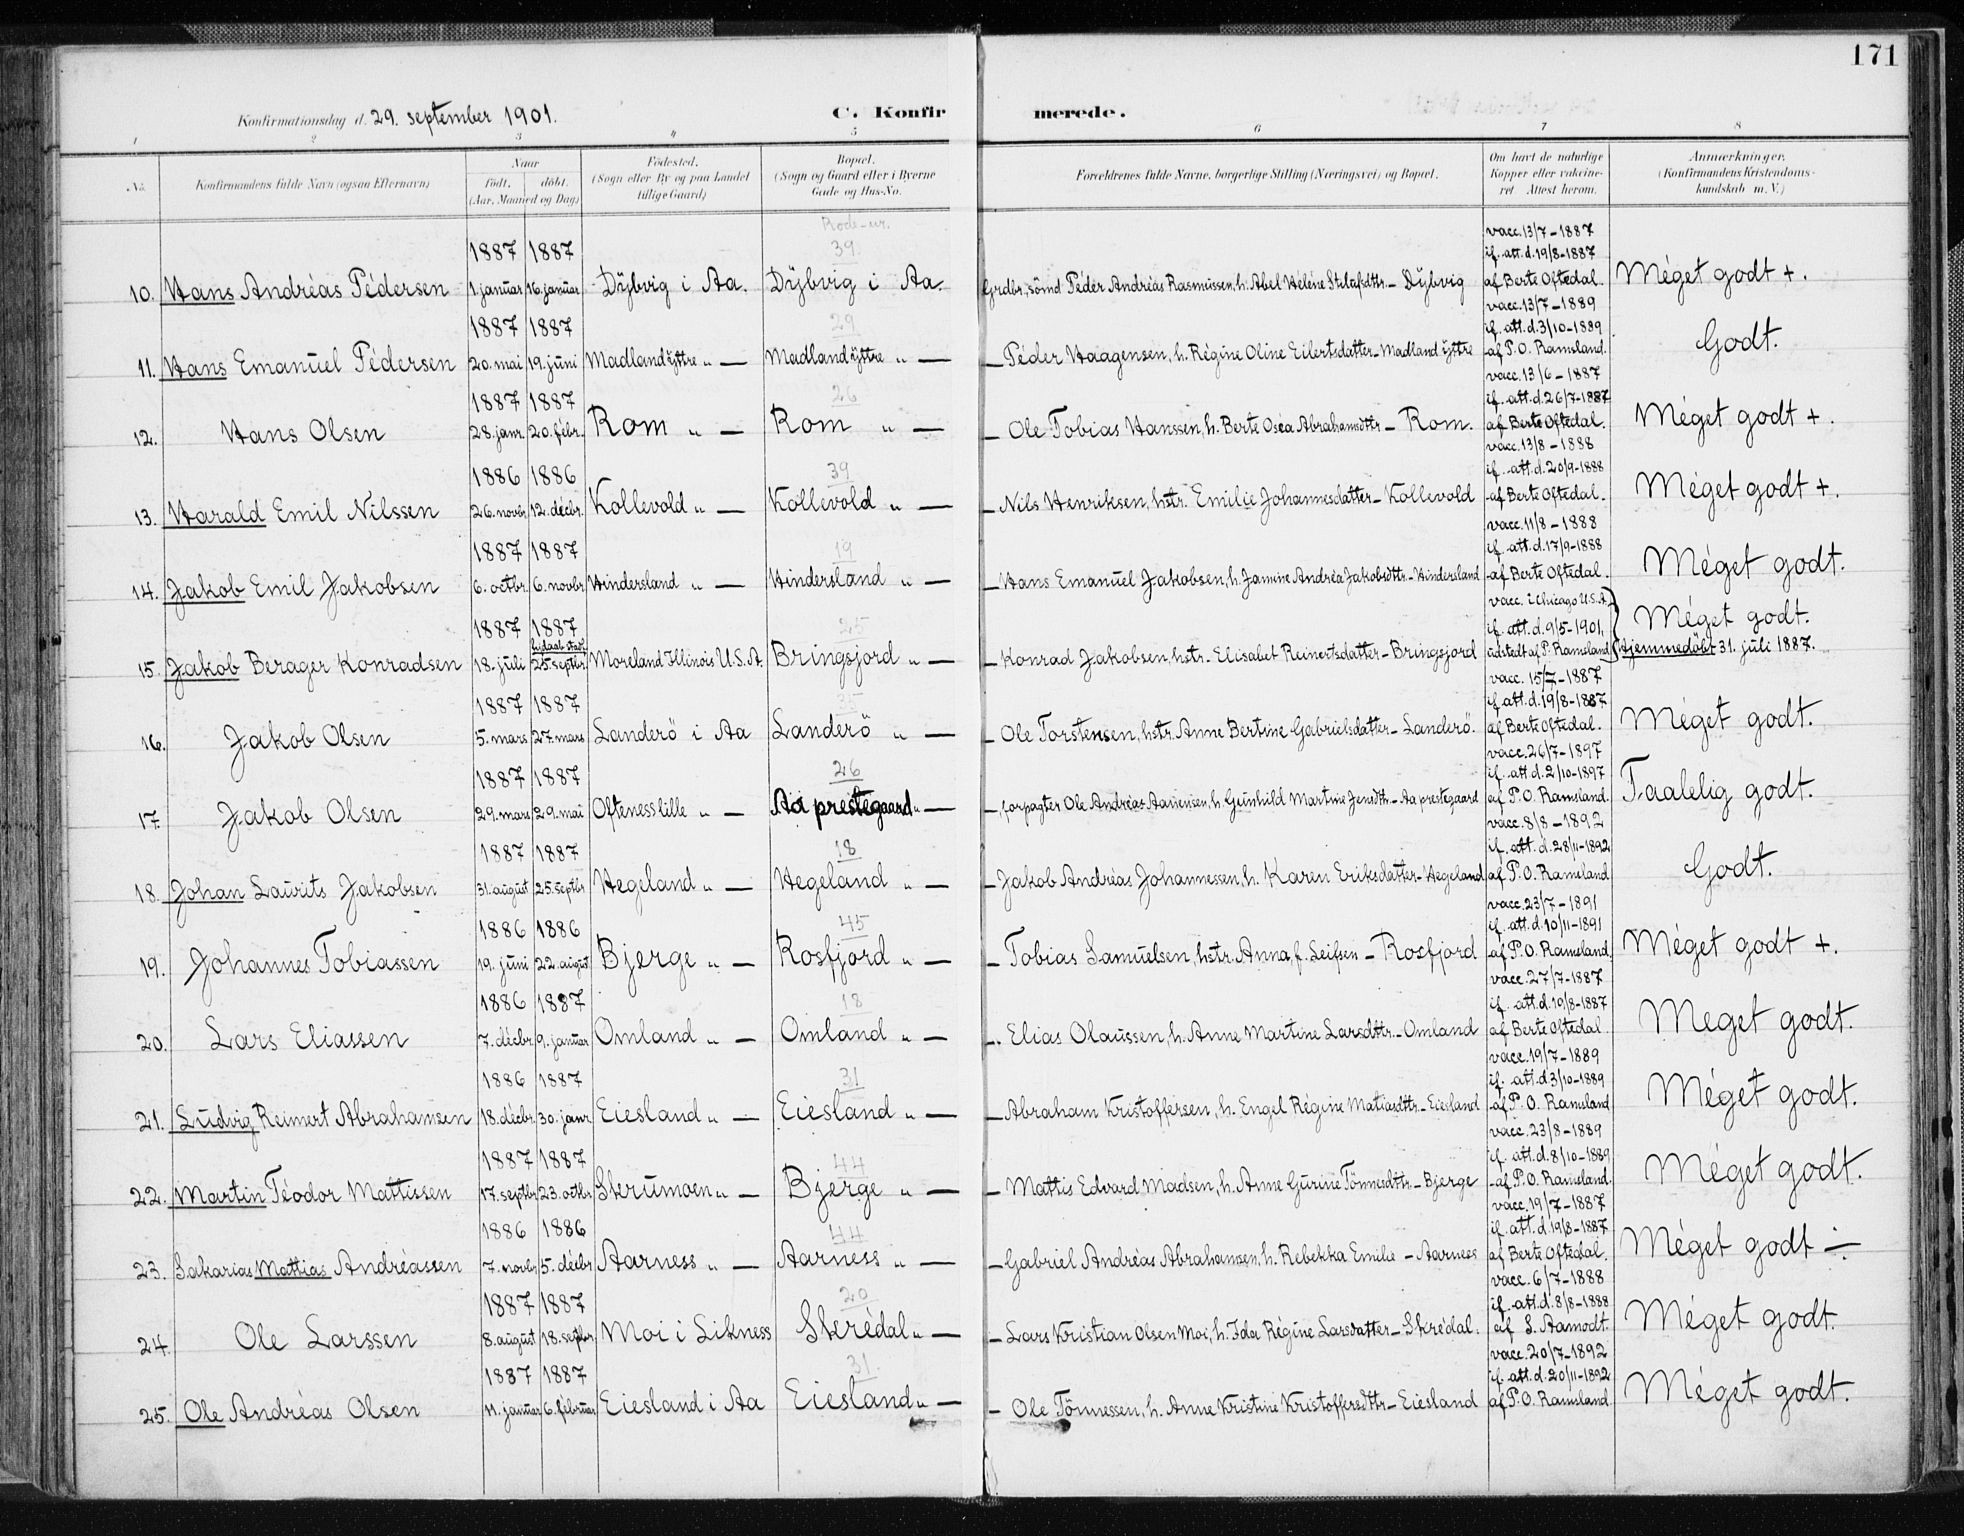 171
Konfirmationsdag d. 29. september 1901. C. Konfirmerede.
1 2 3 4 5 6 7 8
No. Konfirmandens fulde Navn (ogsaa Efternavn) Naar født. døbt. (Aar, Maaned og Dag) Fødested. (Sogn eller By og paa Landet tillige Gaard) Bopæl. (Sogn og Gaard eller i Byerne Gade og Hus-No. Forældrenes fulde Navne, borgerlige Stilling (Næringsvei) og Bopæl. Om havt de naturlige Kopper eller vakcineret. Attest herom. Anmærkninger. (Konfirmandens Kristendomskundskab m. V.)
Rode-nr.
1887 1887 39 vacc. 13/7-1887 if. att. d. 19/8-1887
10. Hans Andréas Pédersen 1 januar 16. januar Dÿbvig i Aa. Dÿbvig i Aa. Grdbr., sömd Péder Andréas Rasmussen, h. Abel Heléne - Dÿbvig af Berte Oftedal. Méget godt +.
1887 1887 29 vacc. 13/7-1889 if. att. d. 3/10-1889
11. Hans Emanuel Pédersen 20. mai 19. juni Madland ÿttre " — Madland ÿttre " — — Péder Haagensen, h. Régine Oline Eilertsdatter - Madland ÿttre af P. O. Ramsland. Godt.
1887 1887 26 vacc. 13/6-1887 if. att. d. 26/7-1887
12. Hans Olsen 28. janr. 20. febr. Rom " — Rom " — — Ole Tobias Hanssen, h. Berte Oséa Abrahamsdttr - Rom. af Berte Oftedal. Méget godt +.
1886 1886 39 vacc. 13/8-1888 if. att. d. 20/9-1888
13. Harald Emil Nilssen 26. novbr. 12. décbr. Kollevold " — Kollevold " — — Nils Henriksen, hstr. Emilie Johannesdatter - Kollevold af Berte Oftedal. Méget godt +.
1887 1887 19 vacc. 11/8-1888 if. att. d. 17/9-1888
14. Jakob Emil Jakobsen 6. octbr. 6. novbr. Hindersland " — Hindersland " — — Hans Emanuel Jakobsen, h. Janine Andréa Jakobsdttr - Hindersland af Berte Oftedal. Méget godt.
1887 1887 25 vacc. i Chicago U.S.A. if. att. d. 9/5-1901, Méget godt.
15. Jakob Berager Konradsen 18. juli 25. septbr. Moreland Illinois U.S.A. Bringsjord " — — Konrad Jakobsen, hstr. Elisabet Reinertsdatter - Bringsjord udstedt af P. Ramsland Hjemmedöbt 31. juli 1887.
1887 1887 vacc. 15/7-1887 if. att. d. 19/8-1887
16. Jakob Olsen 5. mars 27. mars Landerö i Aa Landerö " — — Ole Torstensen, hstr. Anne Bertine Gabrielsdatter - Landerö. af Berte Oftedal. Méget godt.
1887 1887 26 vacc. 26/7-1897 if. att. d. 2/10-1897
17. Jakob Olsen 29. mars 29. mai Oftenes lille " — Aa prestegaard " — —, forpagter Ole Andréas Aanensen, h. Gunhild Martine - Aa prestegaard af P. O. Ramsland. Taalelig godt.
1887 1887 18 vacc. 8/8-1892 if. att. d. 28/11-1892
18. Johan Laurits Jakobsen 31. august 25. septbr. Hegeland " — Hegeland " — — Jakob Andréas Johannessen, h. Karen Eriksdatter - Hegeland af P. O. Ramsland Godt.
1886 1886 45 vacc. 23/7-1891 if. att. d. 10/11-1891
19. Johannes Tobiassen 19. juni 22. august Bjerge " — Rosfjord " — — Tobias Samuelsen, hstr. Anna, f. Leifsen - Rosfjord af P. O. Ramsland. Méget godt +.
1886 1887 18 vacc. 27/7-1887 if. att. d. 19/8-1887
20. Lars Eliassen 7. décbr. 9. januar Omland " — Omland " — —. Elias Olaussen, h. Anne Martine Larsdttr. - Omland af Berte Oftedal. Meget godt.
1886 1887 31 vacc. 19/7-1889 if. att. d. 3/10-1889
21. Ludvig Reinert Abrahamsen 18. décbr. 30. janr. Eiesland " — Eiesland " — — Abraham Kristoffersen, h. Engel Régine Matiasdttr. - Eiesland af P. O. Ramsland Méget godt.
1887 1887 44 vacc. 23/8-1889 if. att. d. 8/10-1889
22. Martin Téodor Mattissen 17. septbr. 23. octbr. Skrumoen " — Bjerge " — — Mattis Edvard Madsen, h. Anne Gurine Tönnesdttr. - Bjerge af P. O. Ramsland. Méget godt.
1886 1886 44 vacc. 19/7-1887 if. att. d. 19/8-1887
23. Sakarias Mattias Andréassen 7. novbr. 5. décbr. Aarness " — Aarness " — — Gabriel Andréas Abrahamsen, h. Rebekka Emilie - Aarness af Berte Oftedal. Méget godt ÷
1887 1887 20 vacc. 6/7-1888 if. att. d. 8/8-1888
24. Ole Larssen 8. august 18. septbr. Moi i Likness Skrédal " — — Lars Kristian Olsen Moi, h. Ida Régine Larsdatter - Skrédal. af S. Aamodt. Méget godt.
1887 1887 31. vacc. 20/7-1892 if. att. d. 20/11-1892
25. Ole Andréas Olsen 11. januar 6. februar Eiesland i Aa Eiesland " — — Ole Tönnessen, h. Anne Kristine Kristoffersdttr - Eiesland af P. O. Ramsland. Méget godt.